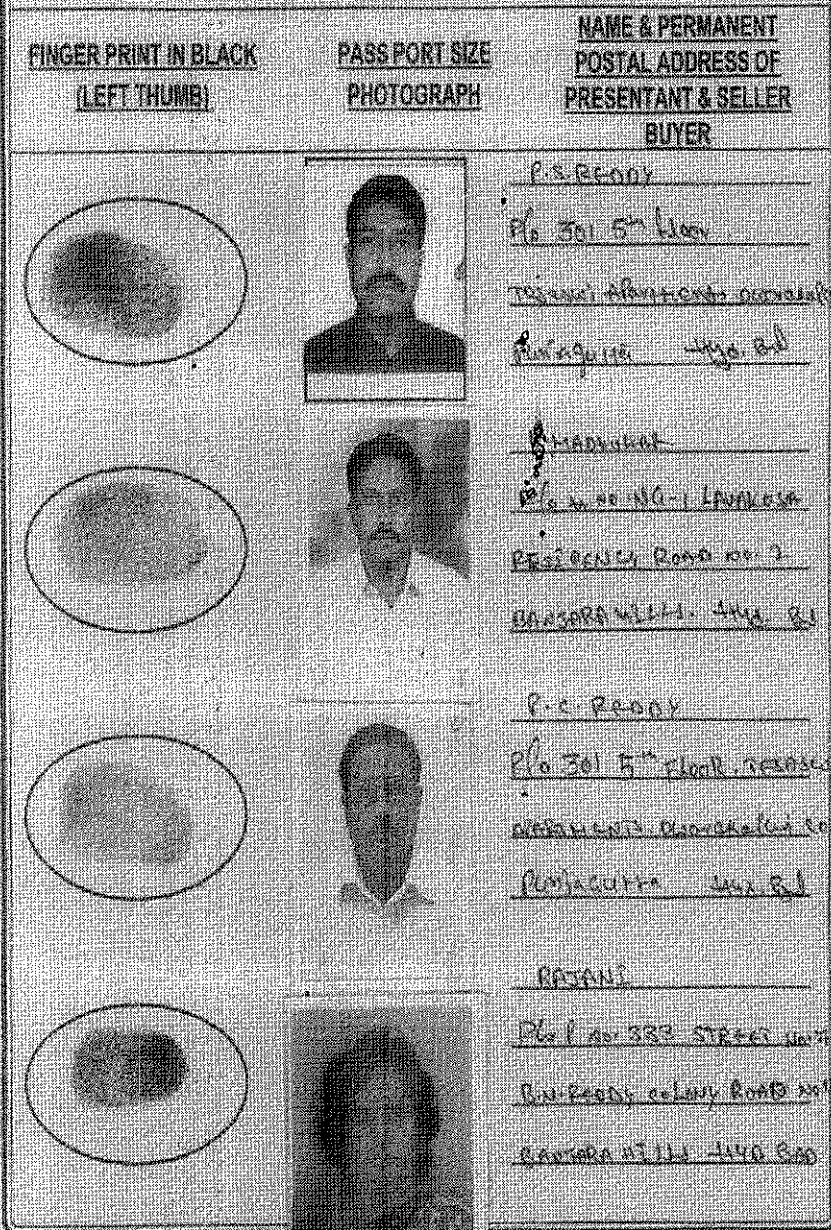 FINGER PRINT IN BLACK
(LEFT THUMB)
PASS PORT SIZE
PHOTOGRAPH
NAME & PERMANENT
POSTAL ADDRESS OF
PRESENTANT & SELLER
BUYER
P.S. REDDY
R/o 301 5th floor
Hyd. Bd
MADHUKAR
NG-1 LAVAKUSA
RESIDENCY ROAD no. 2
BANJARA HILLS. Hyd Bd
P. C. REDDY
R/o 301 5th FLOOR.
APARTMENTS
PUNJAGUTTA Hyd. Bd
RAJANI
R/o P no. 333 STREET No.
B.N. REDDY COLONY ROAD No
BANJARA HILLS HYD BAD